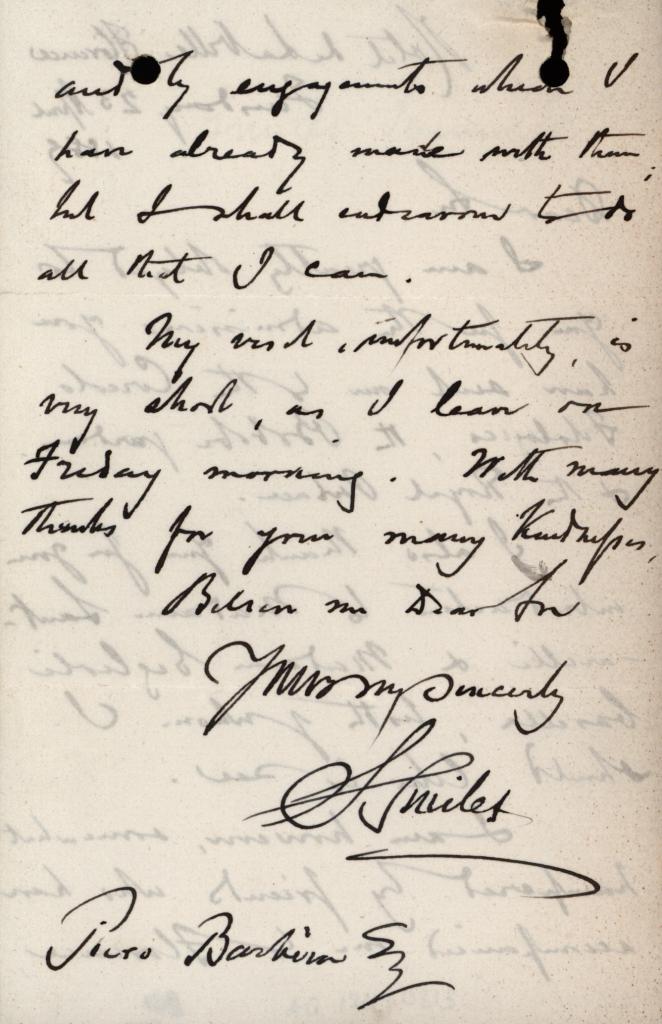 and by engagements which I
have already made with them;
but I shall endeavour to do
all that I can.
My visit, unfortunately, is
very short, as I leave on
Friday morning. With many
thanks for your many kindnesses,
Believe me Dear Sir
Yours very Sincerely
S Smiles
Piero Barbèra Esq